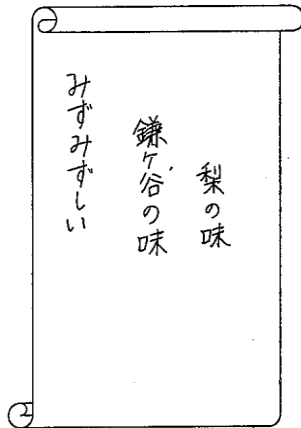 梨の味
鎌ヶ谷の味
みずみずしい